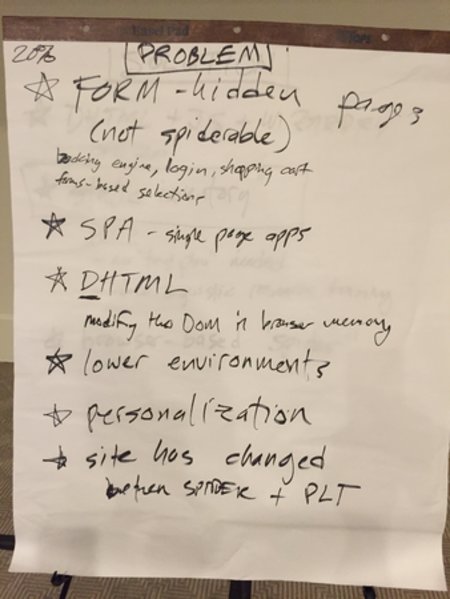 Easel Pad
20%
PROBLEM
☆ FORM - hidden pages
(not spiderable)
booking engine, login, shopping cart
forms-based selections
☆ SPA - single page apps
☆ DHTML
modify the DOM in browser memory
☆ lower environments
☆ personalization
☆ site has changed
between SPIDER + PLT